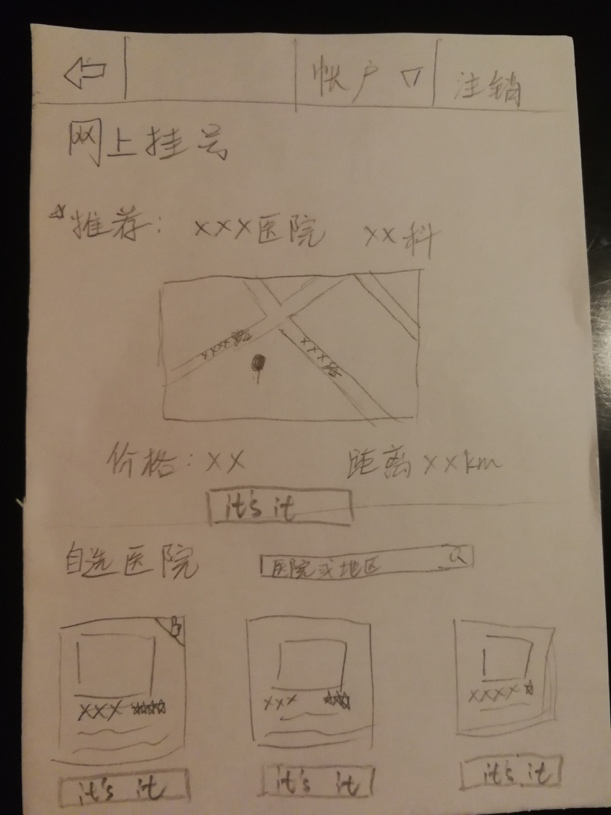 帐户 ▽ 注销
网上挂号
☆推荐：xxx医院 xx科
xxx路 xxx路
价格：xx 距离xxkm
it's it
自选医院 医院或地区
xxx ☆☆☆☆ xxx ☆☆☆ xxxx ☆
it's it it's it it's it